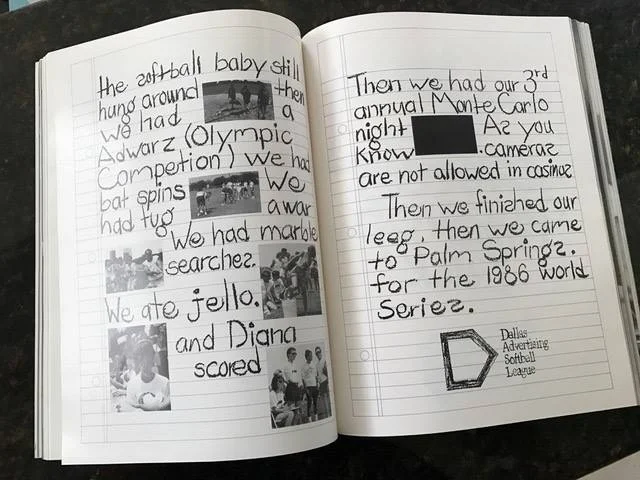 the zoftball baby still
hung around then
we had a
Adwarz (Olympic
Competion) we had
bat spins We
had tug a war
We had marble
searchez.
We ate jello.
and Diana
scored
Then we had our 3rd
annual Monte Carlo
night Az you
know cameraz
are not allowed in casinoz
Then we finizhed our
leeg, then we came
to Palm Springz.
for the 1986 World
Seriez.
Dallas
Advertising
Softball
League